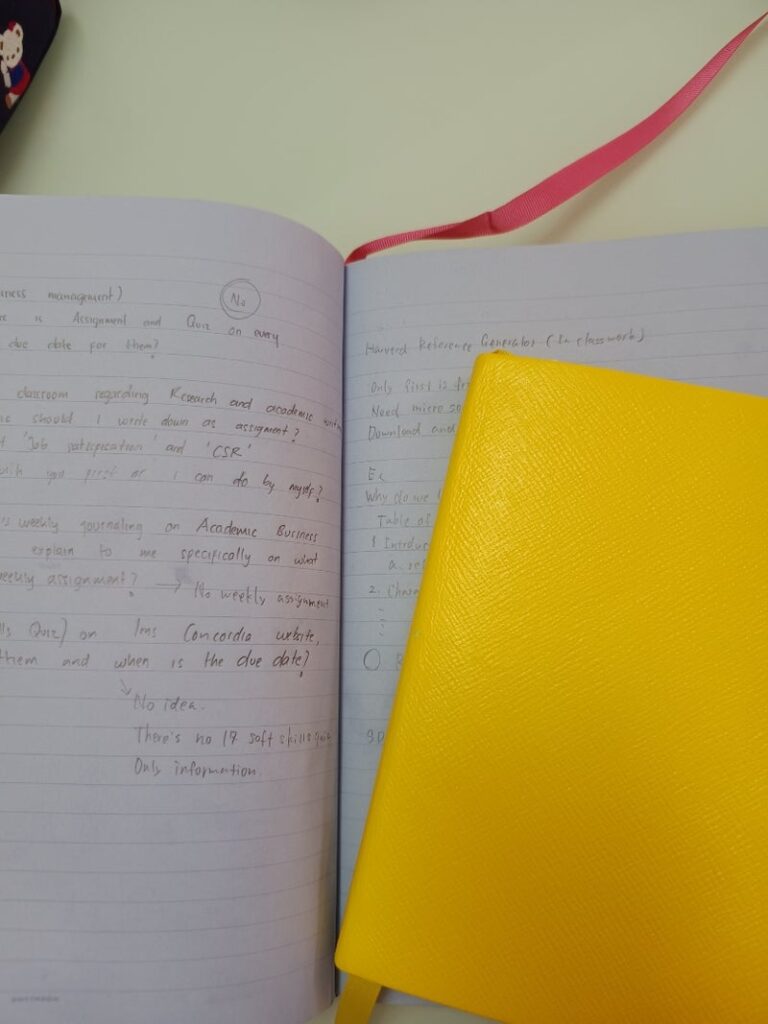 iness management)
No
is Assignment and Quiz on every
due date for them?
classroom regarding Research and academic
should I wrote down as assigment?
'Job satispication' and 'CSR'
you first or i can do by myslf?
weekly journaling on Academic Business
explain to me specifically on what
weekly assignment? → No weekly assignment
Quiz) on lms Concordia website,
them and when is the due date?
No idea.
There's no 17 soft skills quiz
Only information.
Harvard Reference Generator (In classwork)
Only first 12
Need micro so
Download and
Ex
Why do we
Table of
1 Introduc
a. re
2.